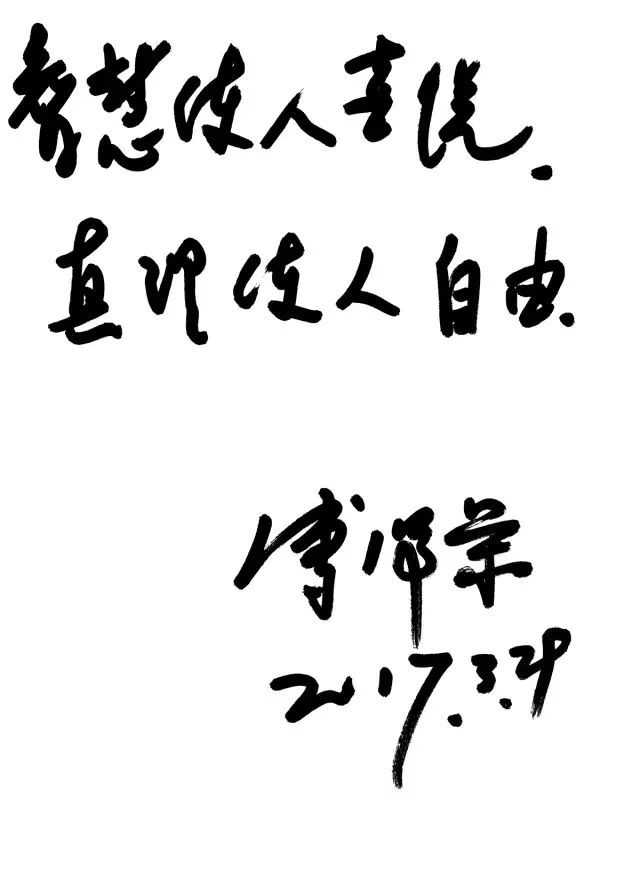 智慧使人喜悦.
真理使人自由.
傅佩荣
2017.3.29